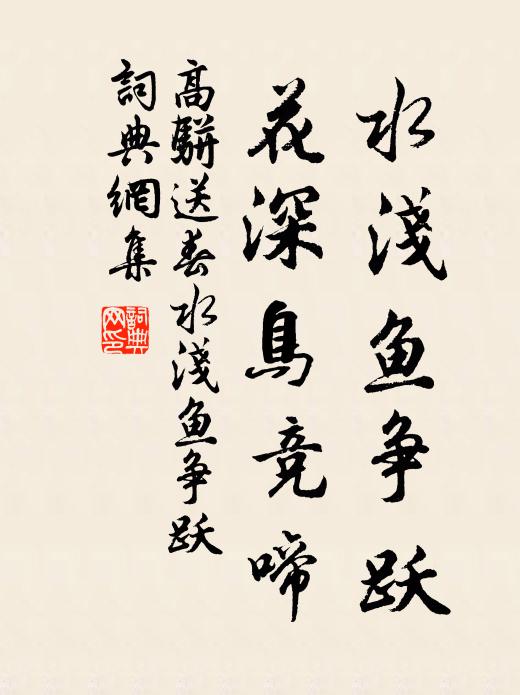 水淺鱼争跃
花深鳥竞啼
高駢送春水淺鱼争跃
詞典網集
詞典网印